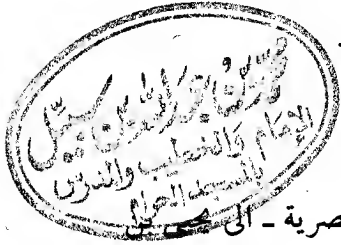 محمد بن عبدالله بن سبيل
الإمام والخطيب والمدرس
بالمسجد الحرام
صرية ـ الى